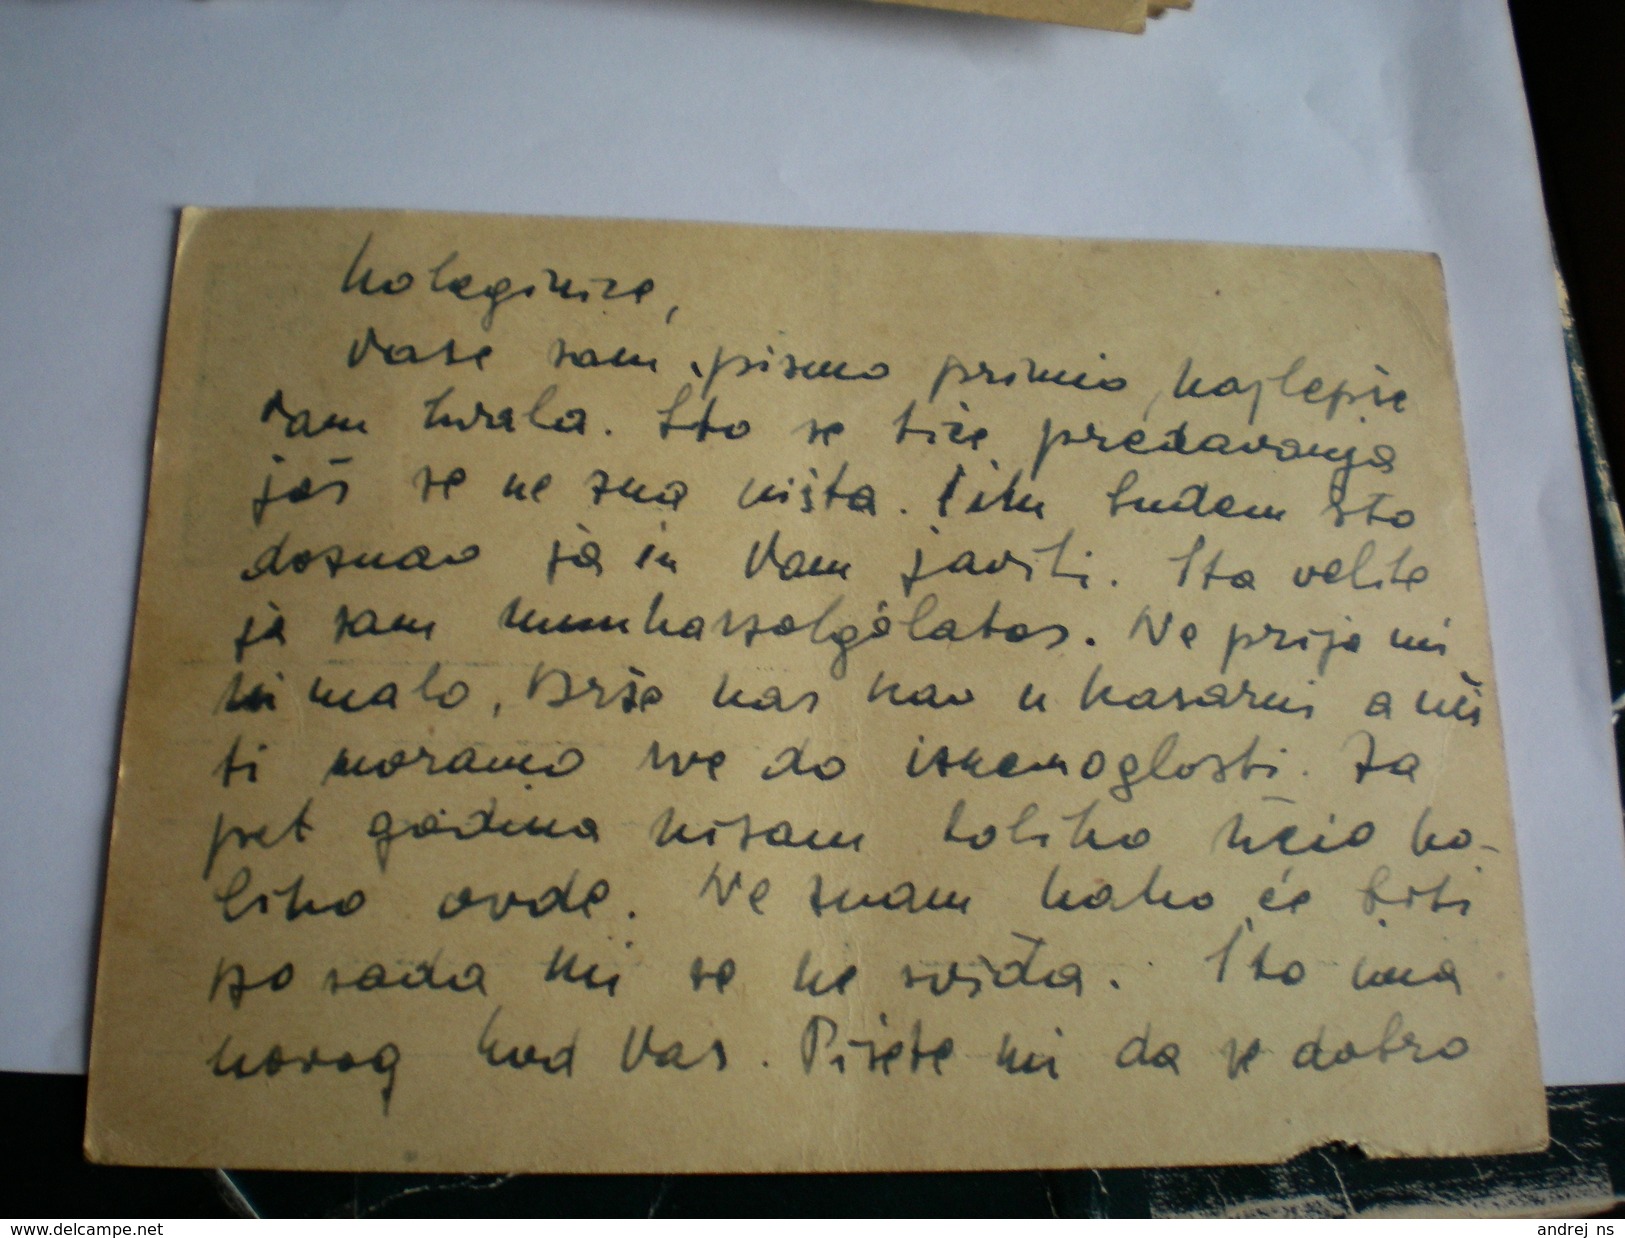 Koleginice,
Vaše sam pismo primio, najlepše
Vam hvala. Što se tiče predavanja
još se ne zna ništa. Čim budem što
doznao ja ću Vam javiti. Šta velite
ja sam munkaszolgálatos. Ne prija mi
ni malo, Drže nas kao u kasarni a uči
ti moramo sve do iznemoglosti. Za
pet godina nisam toliko učio ko-
liko ovde. Ne znam kako će biti
po sada mi se ne sviđa. Što ima
novog kod Vas. Pišete mi da se dobro
www.delcampe.net
andrej ns